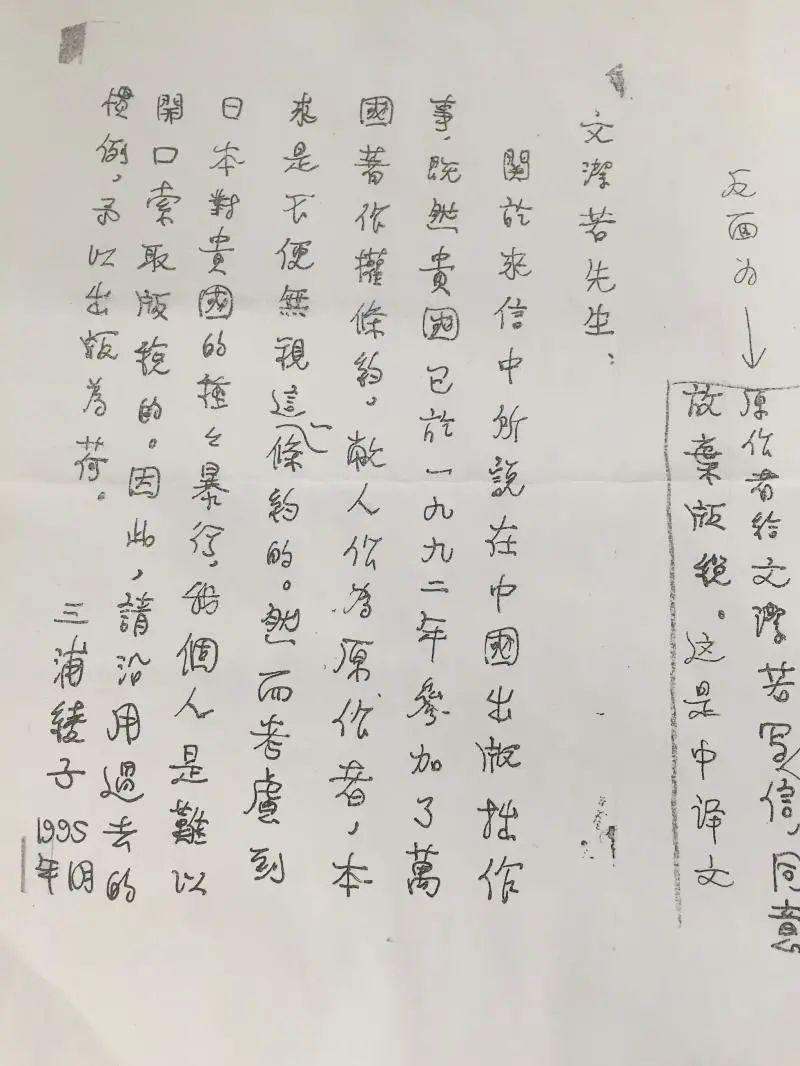 反面为
原作者给文潔若写信,同意
放棄版税。这是中译文
文潔若先生:
関於來信中所説在中國出版拙作
事,既然貴國已於一九九二年參加了萬
國著作權條約。敝人作為原作者,本
來是不便無視這一條約的。然而考慮到
日本對貴國的種々暴行,我個人是難以
開口索取版税的。因此,請沿用過去的
慣例,予以出版為荷。
三浦綾子
1995年